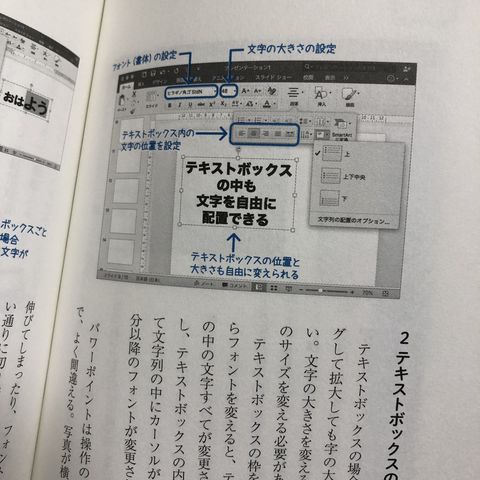 フォント(書体)の設定
文字の大きさの設定
プレゼンテーション1
スライド ショー
校閲
表示
ヒラギノ角ゴ StdN
48
段落
挿入
図形描画
テキストボックス内の
文字の位置を設定
SmartArt
上
上下中央
下
文字列の配置のオプション...
テキストボックス
の中も
文字を自由に
配置できる
テキストボックスの位置と
大きさも自由に変えられる
ノート
コメント
70%
おはよう
ボックスごと
場合
文字が
2 テキストボックスの
テキストボックスの場合
グして拡大しても字の大
い。文字の大きさを変える
のサイズを変える必要があ
テキストボックスの枠を
らフォントを変えると、テ
の中の文字すべてが変更さ
し、テキストボックスの内
て文字列の中にカーソルが
分以降のフォントが変更さ
パワーポイントは操作の
で、よく間違える。写真が横
伸びてしまったり、フォン
い通りに切り